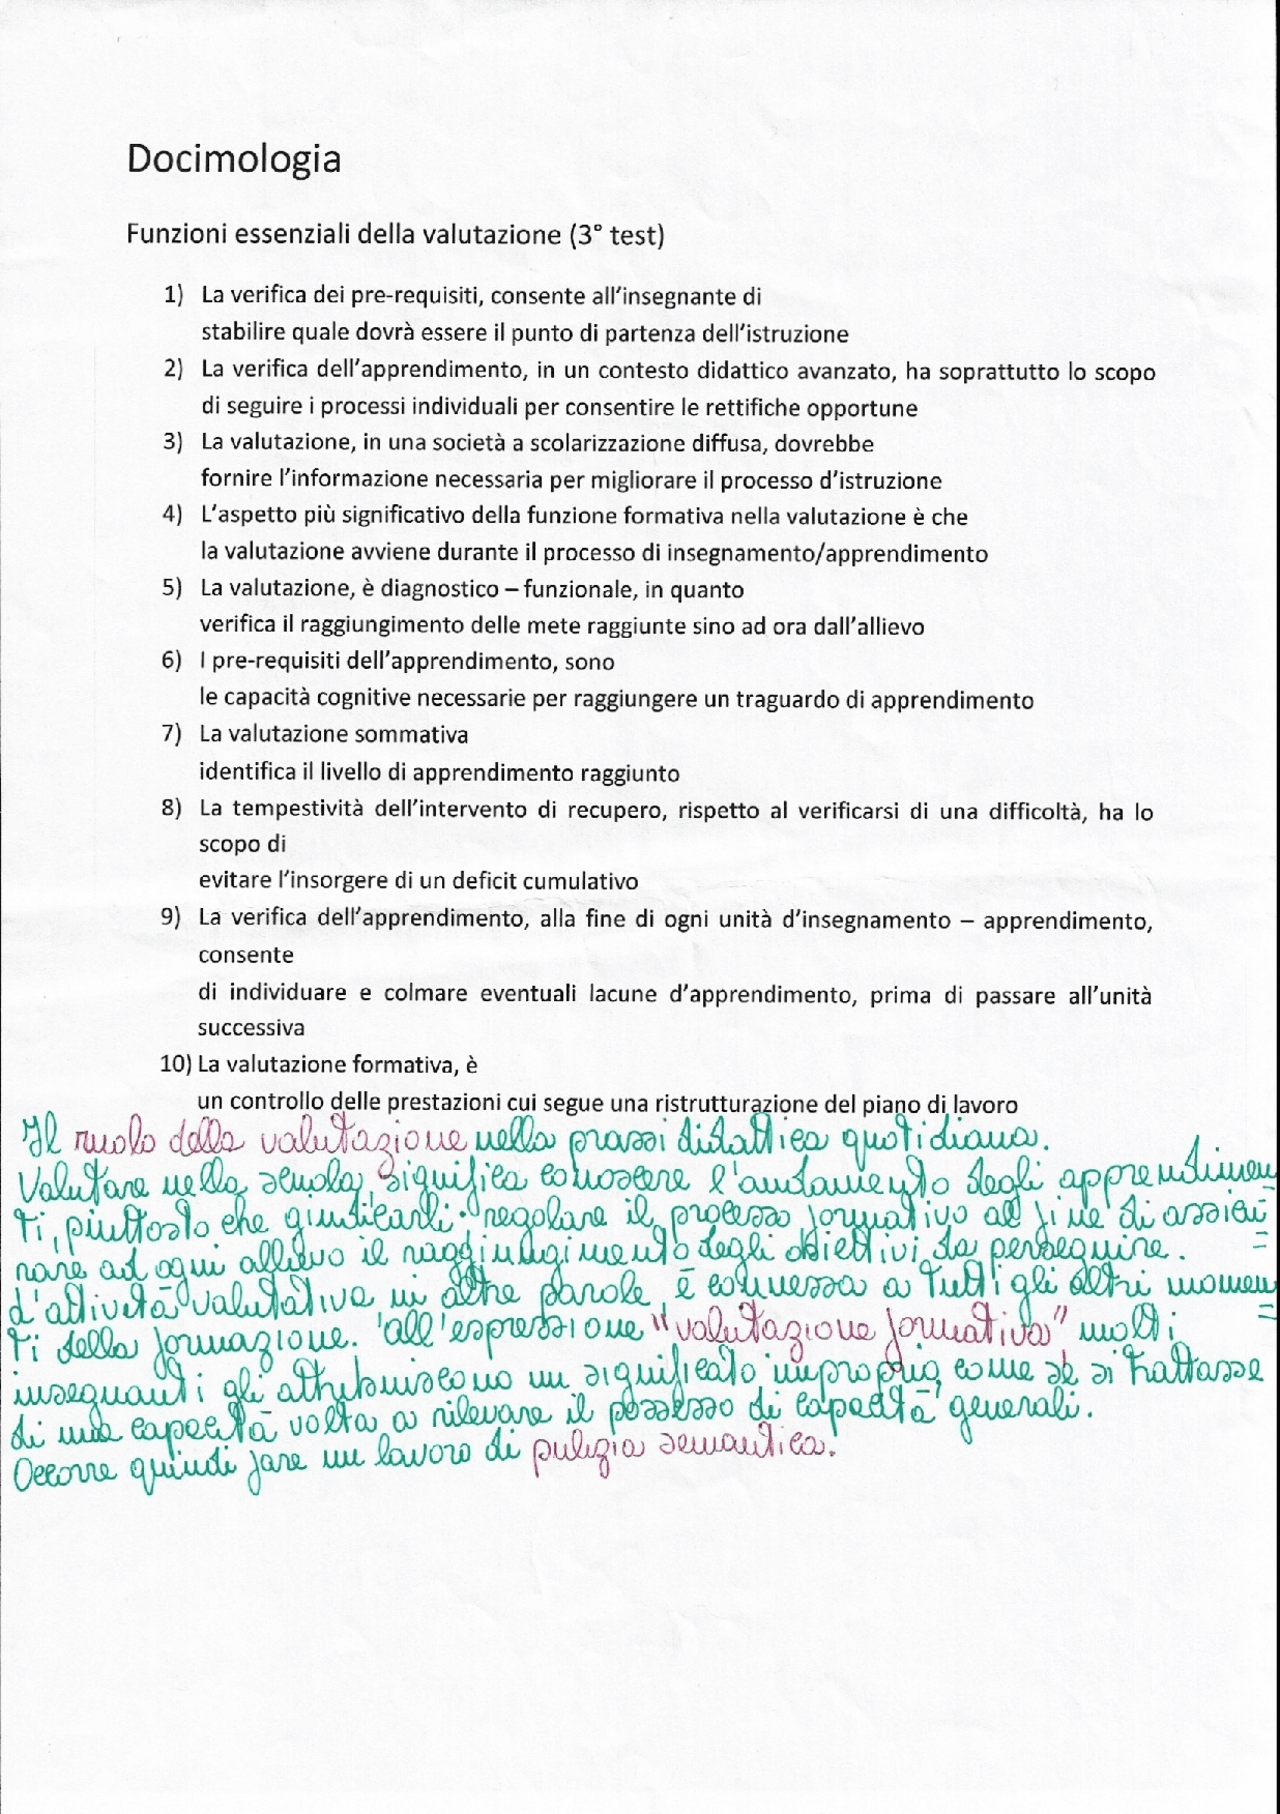 Docimologia
Funzioni essenziali della valutazione (3° test)
1) La verifica dei pre-requisiti, consente all'insegnante di
stabilire quale dovrà essere il punto di partenza dell'istruzione
2) La verifica dell'apprendimento, in un contesto didattico avanzato, ha soprattutto lo scopo
di seguire i processi individuali per consentire le rettifiche opportune
3) La valutazione, in una società a scolarizzazione diffusa, dovrebbe
fornire l'informazione necessaria per migliorare il processo d'istruzione
4) L'aspetto più significativo della funzione formativa nella valutazione è che
la valutazione avviene durante il processo di insegnamento/apprendimento
5) La valutazione, è diagnostico – funzionale, in quanto
verifica il raggiungimento delle mete raggiunte sino ad ora dall'allievo
6) I pre-requisiti dell'apprendimento, sono
le capacità cognitive necessarie per raggiungere un traguardo di apprendimento
7) La valutazione sommativa
identifica il livello di apprendimento raggiunto
8) La tempestività dell'intervento di recupero, rispetto al verificarsi di una difficoltà, ha lo
scopo di
evitare l'insorgere di un deficit cumulativo
9) La verifica dell'apprendimento, alla fine di ogni unità d'insegnamento – apprendimento,
consente
di individuare e colmare eventuali lacune d'apprendimento, prima di passare all'unità
successiva
10) La valutazione formativa, è
un controllo delle prestazioni cui segue una ristrutturazione del piano di lavoro
Il ruolo della valutazione nella prassi didattica quotidiana.
Valutare nella scuola, significa conoscere l'andamento degli apprendimen
ti, piuttosto che giudicarli: regolare il processo formativo al fine di assicu=
rare ad ogni allievo il raggiungimento degli obiettivi da perseguire.
L'attività valutativa in altre parole, è connessa a tutti gli altri momen=
ti della formazione. All'espressione "valutazione formativa" molti
insegnanti gli attribuiscono un significato improprio, come se si trattasse
di una capacità volta a rilevare il possesso di capacità generali.
Occorre quindi fare un lavoro di pulizia semantica.